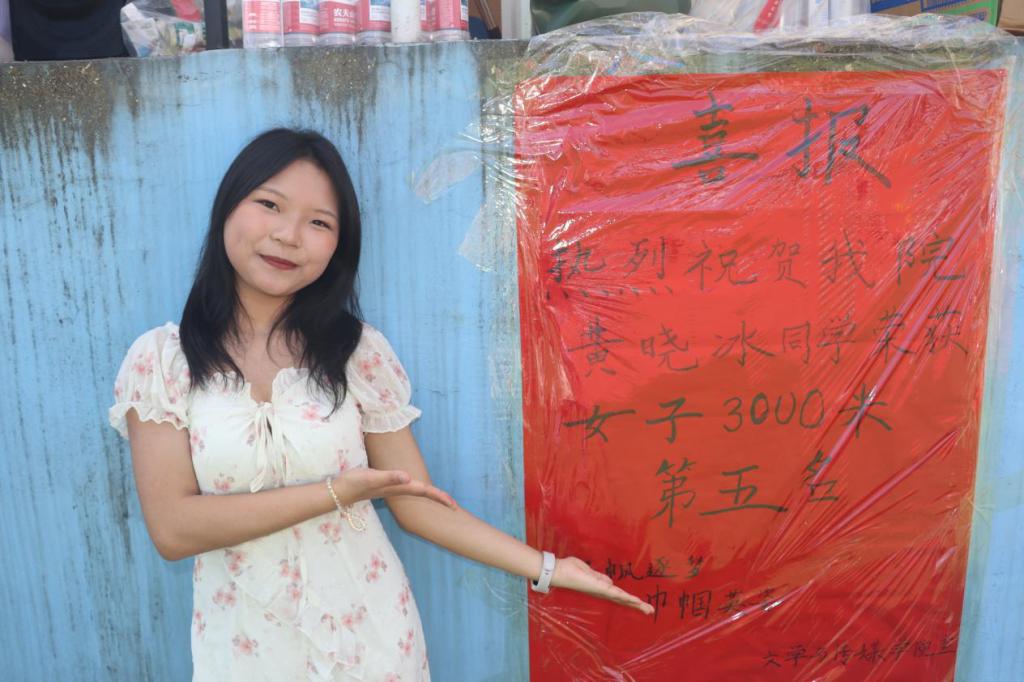 农夫山泉
喜报
热烈祝贺我院
黄晓冰同学荣获
女子3000米
第五名
帆逐梦
巾帼英姿
文学与传媒学院